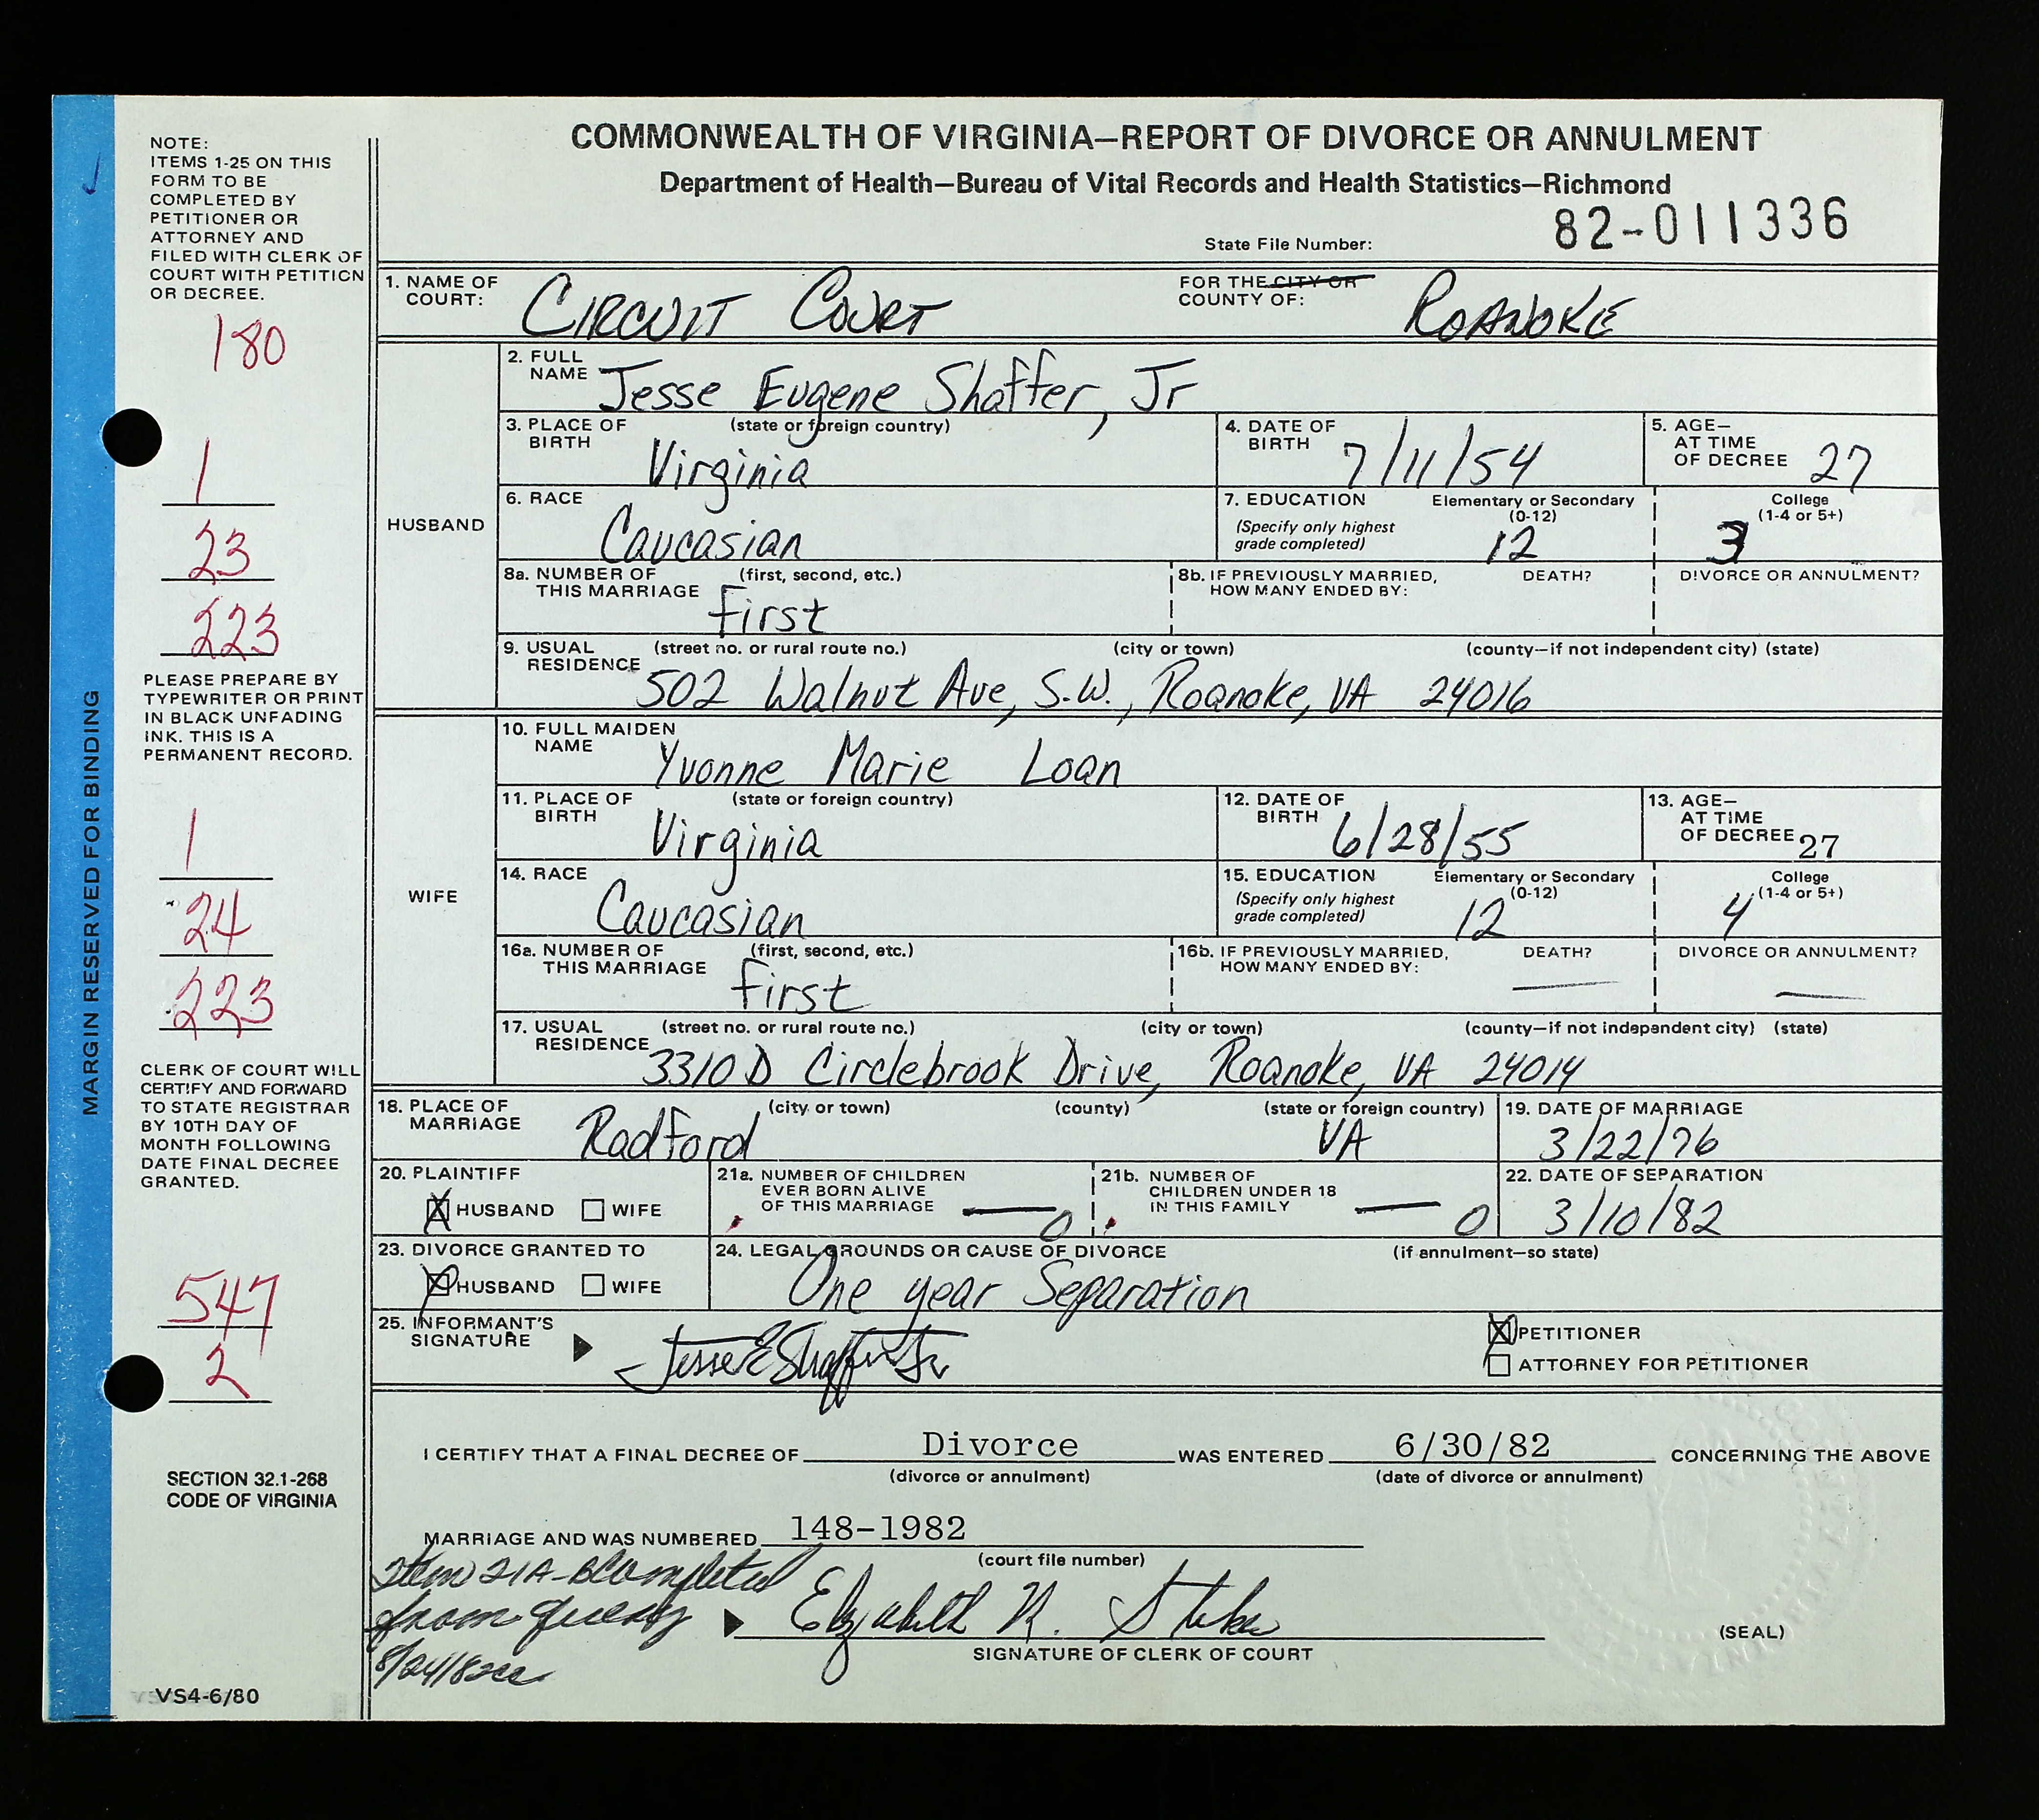 COMMONWEALTH OF VIRGINIA—REPORT OF DIVORCE OR ANNULMENT
Department of Health—Bureau of Vital Records and Health Statistics—Richmond
State File Number: 82-011336
NOTE:
ITEMS 1-25 ON THIS
FORM TO BE
COMPLETED BY
PETITIONER OR
ATTORNEY AND
FILED WITH CLERK OF
COURT WITH PETITION
OR DECREE.
180
1
23
223
PLEASE PREPARE BY
TYPEWRITER OR PRINT
IN BLACK UNFADING
INK. THIS IS A
PERMANENT RECORD.
1
24
223
CLERK OF COURT WILL
CERTIFY AND FORWARD
TO STATE REGISTRAR
BY 10TH DAY OF
MONTH FOLLOWING
DATE FINAL DECREE
GRANTED.
547
2
SECTION 32.1-268
CODE OF VIRGINIA
VS4-6/80
MARGIN RESERVED FOR BINDING
1. NAME OF COURT: CIRCUIT COURT FOR THE CITY OR COUNTY OF: ROANOKE
HUSBAND
2. FULL NAME Jesse Eugene Shaffer, Jr
3. PLACE OF BIRTH (state or foreign country) Virginia 4. DATE OF BIRTH 7/11/54 5. AGE— AT TIME OF DECREE 27
6. RACE Caucasian 7. EDUCATION (Specify only highest grade completed) Elementary or Secondary (0-12) 12 College (1-4 or 5+) 3
8a. NUMBER OF THIS MARRIAGE (first, second, etc.) first 8b. IF PREVIOUSLY MARRIED, HOW MANY ENDED BY: DEATH? DIVORCE OR ANNULMENT?
9. USUAL RESIDENCE (street no. or rural route no.) (city or town) (county—if not independent city) (state)
502 Walnut Ave, S.W., Roanoke, VA 24016
WIFE
10. FULL MAIDEN NAME Yvonne Marie Loan
11. PLACE OF BIRTH (state or foreign country) Virginia 12. DATE OF BIRTH 6/28/55 13. AGE— AT TIME OF DECREE 27
14. RACE Caucasian 15. EDUCATION (Specify only highest grade completed) Elementary or Secondary (0-12) 12 College (1-4 or 5+) 4
16a. NUMBER OF THIS MARRIAGE (first, second, etc.) first 16b. IF PREVIOUSLY MARRIED, HOW MANY ENDED BY: DEATH? — DIVORCE OR ANNULMENT? —
17. USUAL RESIDENCE (street no. or rural route no.) (city or town) (county—if not independent city) (state)
3310 D Circlebrook Drive, Roanoke, VA 24014
18. PLACE OF MARRIAGE (city or town) (county) (state or foreign country) Radford VA 19. DATE OF MARRIAGE 3/22/76
20. PLAINTIFF X HUSBAND WIFE 21a. NUMBER OF CHILDREN EVER BORN ALIVE OF THIS MARRIAGE — 0 21b. NUMBER OF CHILDREN UNDER 18 IN THIS FAMILY — 0 22. DATE OF SEPARATION 3/10/82
23. DIVORCE GRANTED TO X HUSBAND WIFE 24. LEGAL GROUNDS OR CAUSE OF DIVORCE (if annulment—so state) One year Separation
25. INFORMANT'S SIGNATURE Jesse E Shaffer Jr X PETITIONER
ATTORNEY FOR PETITIONER
I CERTIFY THAT A FINAL DECREE OF Divorce WAS ENTERED 6/30/82 CONCERNING THE ABOVE
(divorce or annulment) (date of divorce or annulment)
MARRIAGE AND WAS NUMBERED 148-1982
(court file number)
Item 21A-B Completed
from query
8/24/82
Elizabeth
SIGNATURE OF CLERK OF COURT
(SEAL)